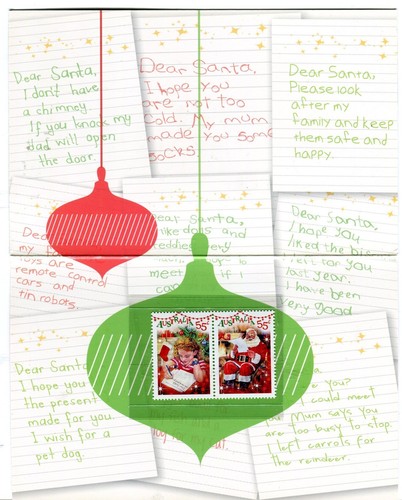 Dear Santa,
I don't have
a chimney.
If you knock my
dad will open
the door.
Dear Santa,
I hope you
are not too
cold. My mum
made you some
socks.
Dear Santa,
Please look
after my
family and keep
them safe and
happy.
my
toys are
remote control
cars and
tin robots.
Dear Santa,
I like dolls and
teddies very
meet
if I
Dear Santa,
I hope you
liked the
left for you
last year.
I have been
very good
Dear Santa
I hope you
the present
made for you
I wish for a
pet dog.
you?
could meet
you. Mum says you
are too busy to stop.
I left carrots for
the reindeer.
AUSTRALIA 55c
AUSTRALIA 55c